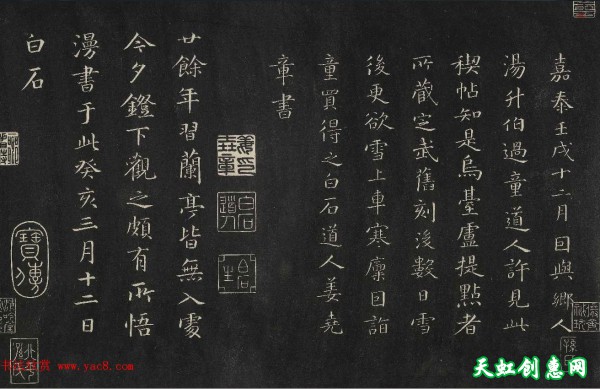 嘉泰壬戌十二月因與鄉人
湯升伯過童道人許見此
稧帖知是烏臺盧提點者
所藏定武舊刻後數日雪
後更欲雪上車寒凜因詣
童買得之白石道人姜堯
章書
廿餘年習蘭亭皆無入處
今夕鐙下觀之頗有所悟
漫書于此癸亥三月十二日
白石
白石
道人
寶傳
www.yac8.com
天虹创惠网